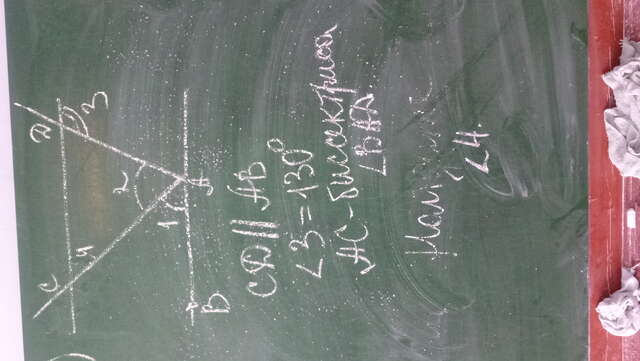 C D
4 3
2
1
B A
CD || AB
∠3 = 130°
AC - биссектриса
∠BAD
Найдите
∠4.